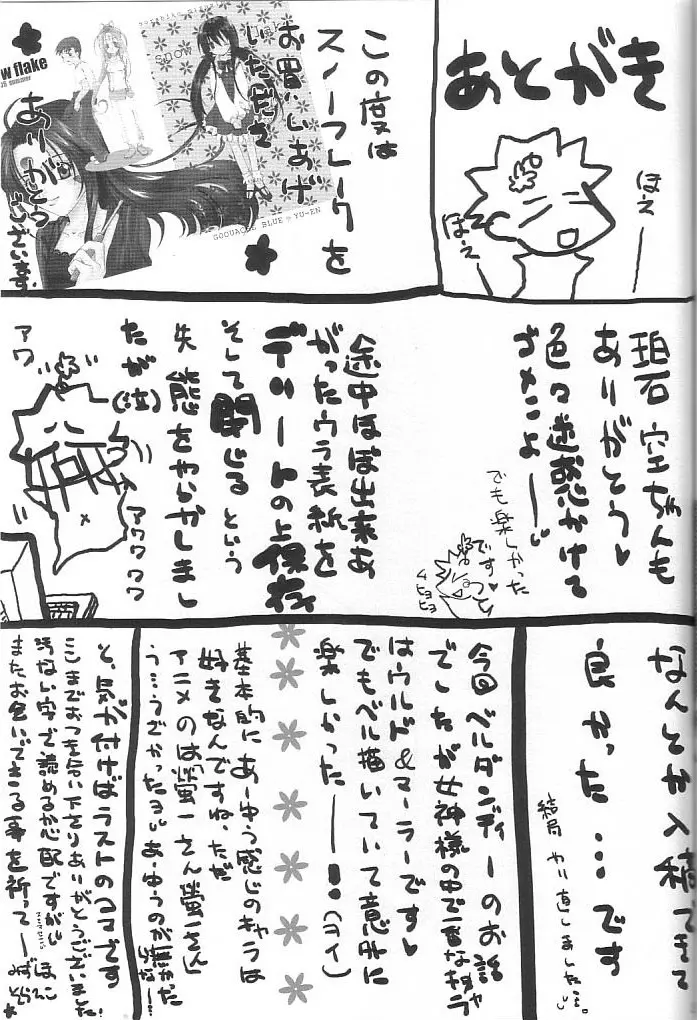 あとがき
ほえー
ほえー
この度は
スノーフレークを
お買いあげ
いただき
ありがとう
ございます。
W flake
GOUACHE BLUE
YU-EN
碧石 空ちゃんも
ありがとう♥
色々迷惑かけて
ゴメンよー
でも楽しかった
ですっ
ムヒョヒョ
途中ほぼ出来あ
がったウラ表紙を
デリートの上保存
そして閉じるという
失態をやらかしまし
たが(泣)
アワ
アワワワワ
なんとか入稿できて
良かった…です
結局 やり直しました…。
今回ベルダンディーのお話
でしたが女神様の中で一番なキャラ
はウルド&マーラーです♥
でもベル描いていて意外に
楽しかったー!
基本的にあーゆう感じのキャラは
好きなんですね。ただ
アニメのは「螢一さん螢一さん」
う…うでかったよ あーゆうのが無かった
と、気が付けばラストのコマです
ここまでおつき合い下さりありがとうございました!
汚ない字で読めるか心配ですが ほんに
またお会いできる事を祈ってー